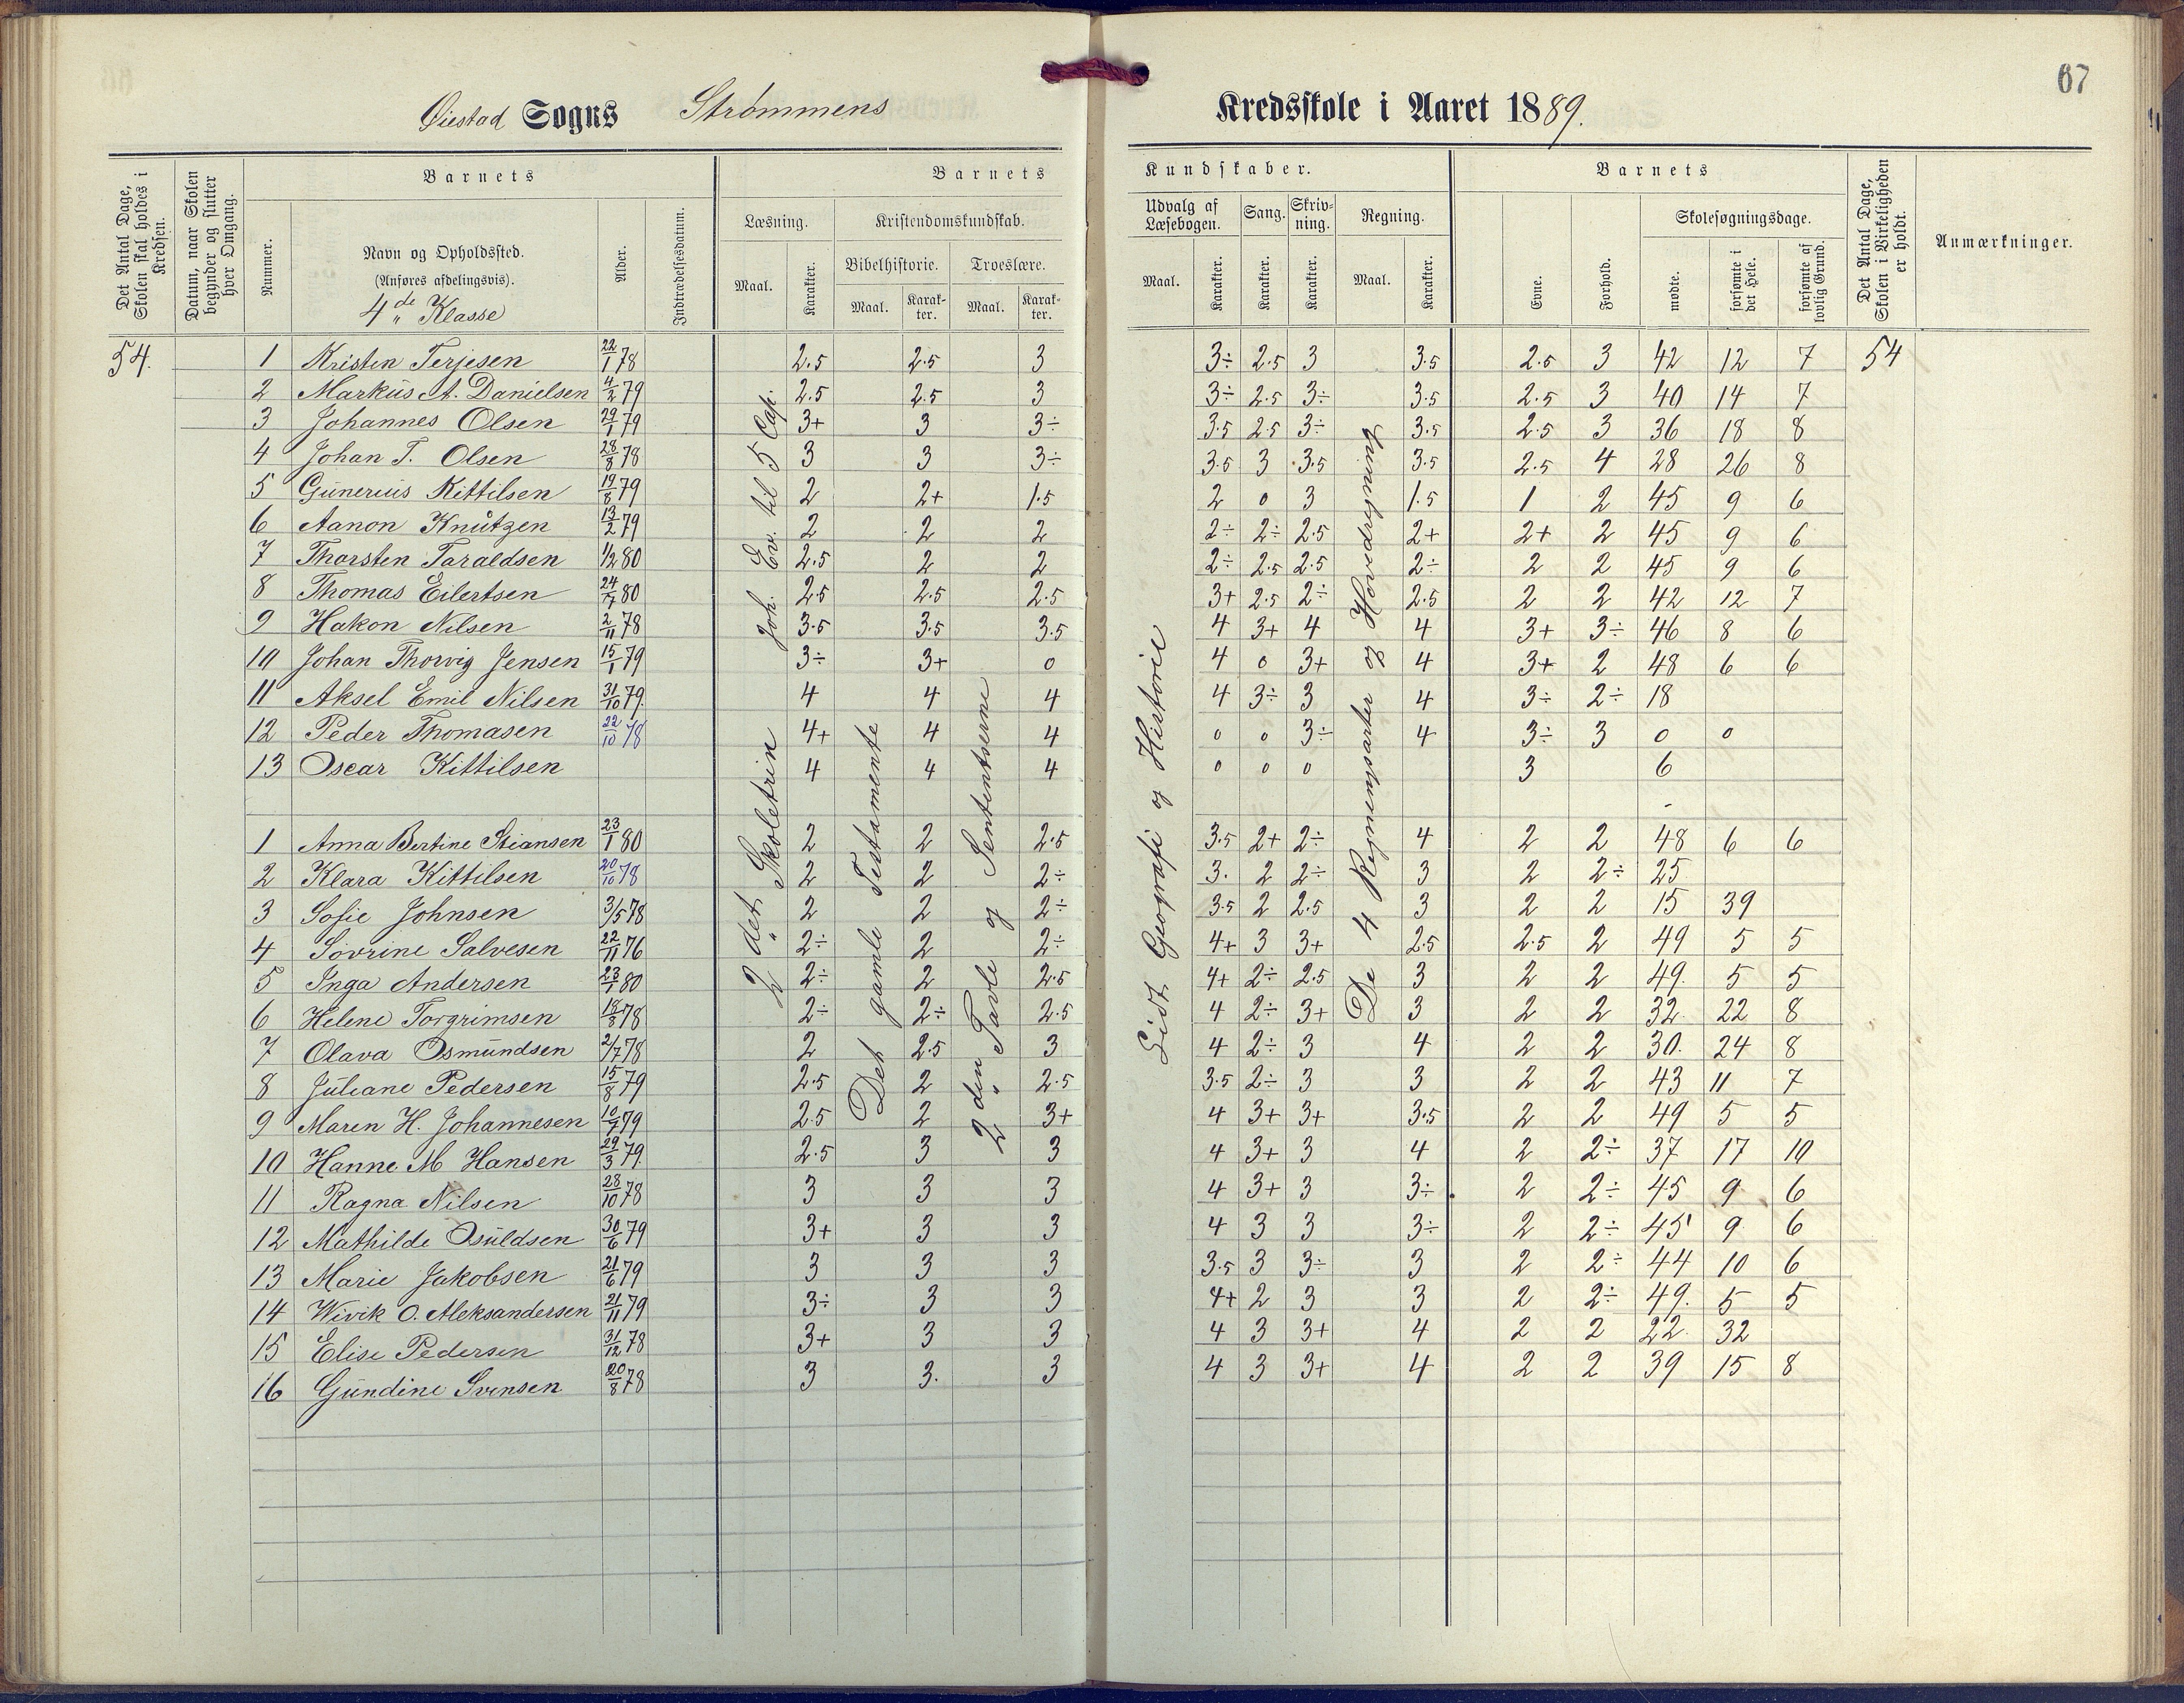 67
Øiestad Sogns Strømmens Kredsskole i Aaret 1889.
Det Antal Dage, Skolen skal holdes i Kredsen.
Datum, naar Skolen begynder og slutter hver Omgang.
Barnets
Nummer.
Navn og Opholdssted.
(Anføres afdelingsvis).
4de Klasse
Alder.
Indtrædelsesdatum.
Barnets Kundskaber.
Læsning.
Maal.
Karakter.
Kristendomskundskab.
Bibelhistorie.
Maal.
Karakter.
Troeslære.
Maal.
Karakter.
Udvalg af Læsebogen.
Maal.
Karakter.
Sang.
Karakter.
Skrivning.
Karakter.
Regning.
Maal.
Karakter.
Barnets
Evne.
Forhold.
Skolesøgningsdage.
mødte.
forsømte i det Hele.
forsømte af lovlig Grund.
Det Antal Dage, Skolen i Virkeligheden er holdt.
Anmærkninger.
54. 1 Kristen Terjesen 22/1 78 2.5 2.5 3 3÷ 2.5 3 3.5 2.5 3 42 12 7 54
2 Markus A. Danielsen 4/2 79 2.5 2.5 3 3÷ 2.5 3÷ 3.5 2.5 3 40 14 7
3 Johannes Olsen 29/1 79 3+ 3 3÷ 3.5 2.5 3÷ 3.5 2.5 3 36 18 8
4 Johan T. Olsen 28/8 78 3 3 3÷ 3.5 3 3.5 3.5 2.5 4 28 26 8
5 Gunerius Kittilsen 19/8 79 2 2+ 1.5 2 0 3 1.5 1 2 45 9 6
6 Aanon Knutzen 13/2 79 2 2 2 2÷ 2÷ 2.5 2+ 2+ 2 45 9 6
7 Thorsten Taraldsen 1/2 80 2.5 2 2 2÷ 2.5 2.5 2÷ 2 2 45 9 6
8 Thomas Eilertsen 24/7 80 2.5 2.5 2.5 3+ 2.5 2÷ 2.5 2 2 42 12 7
9 Hakon Nilsen 2/11 78 3.5 3.5 3.5 4 3+ 4 4 3+ 3÷ 46 8 6
10 Johan Thorvig Jensen 15/1 79 3÷ 3+ 0 4 0 3+ 4 3+ 2 48 6 6
11 Aksel Emil Nilsen 31/10 79. 4 4 4 4 3÷ 3 4 3÷ 2÷ 18
12 Peder Thomasen 22/10 78 4+ 4 4 0 0 3÷ 4 3÷ 3 0 0
13 Oscar Kittilsen 4 4 4 0 0 0 3 6
1 Anna Bertine Stiansen 23/1 80 2 2 2.5 3.5 2+ 2÷ 4 2 2 48 6 6
2 Klara Kittilsen 20/10 78 2 2 2÷ 3. 2 2÷ 3 2 2÷ 25
3 Sofie Johnsen 3/5 78 2 2 2÷ 3.5 2 2.5 3 2 2 15 39
4 Sovrine Salvesen 22/11 76 2÷ 2 2÷ 4+ 3 3+ 2.5 2.5 2 49 5 5
5 Inga Andersen 23/1 80 2÷ 2 2.5 4+ 2÷ 2.5 3 2 2 49. 5 5
6 Helene Torgrimsen 18/8 78 2÷ 2÷ 2.5 4 2÷ 3+ 3 2 2 32 22 8
7 Olava Osmundsen 2/7 78 2 2.5 3 4 2÷ 3 4 2 2 30. 24 8
8 Juliane Pedersen 15/8 79 2.5 2 2.5 3.5 2÷ 3 3 2 2 43 11 7
9 Maren H. Johannesen 10/7 79 2.5 2 3+ 4 3+ 3+ 3.5 2 2 49 5 5
10 Hanne M Hansen 29/3 79. 2.5 3 3 4 3+ 3 4 2 2÷ 37 17 10
11 Ragna Nilsen 28/10 78 3 3 3 4 3+ 3 3÷ 2 2÷ 45 9 6
12 Mathilde Osuldsen 30/6 79 3+ 3 3 4 3 3 3÷ 2 2÷ 45 9 6
13 Marie Jakobsen 21/6 79 3 3 3 3.5 3 3÷ 3 2 2÷ 44 10 6
14 Wivik O. Aleksandersen 21/11 79 3÷ 3 3 4+ 2 3 3 2 2÷ 49. 5 5
15 Elise Pedersen 31/12 78 3+ 3 3 4 3 3+ 4 2 2 22 32
16 Gundine Svensen 20/8 78 3 3. 3 4 3 3+ 4 2 2 39 15 8
2det Skoletrin Joh. Ev. til 5 Cap.
Det gamle Testamente
2den Tavle og Sententserne
Lidt Geografi og Historie
De 4 Regningsarter og Hovedregning